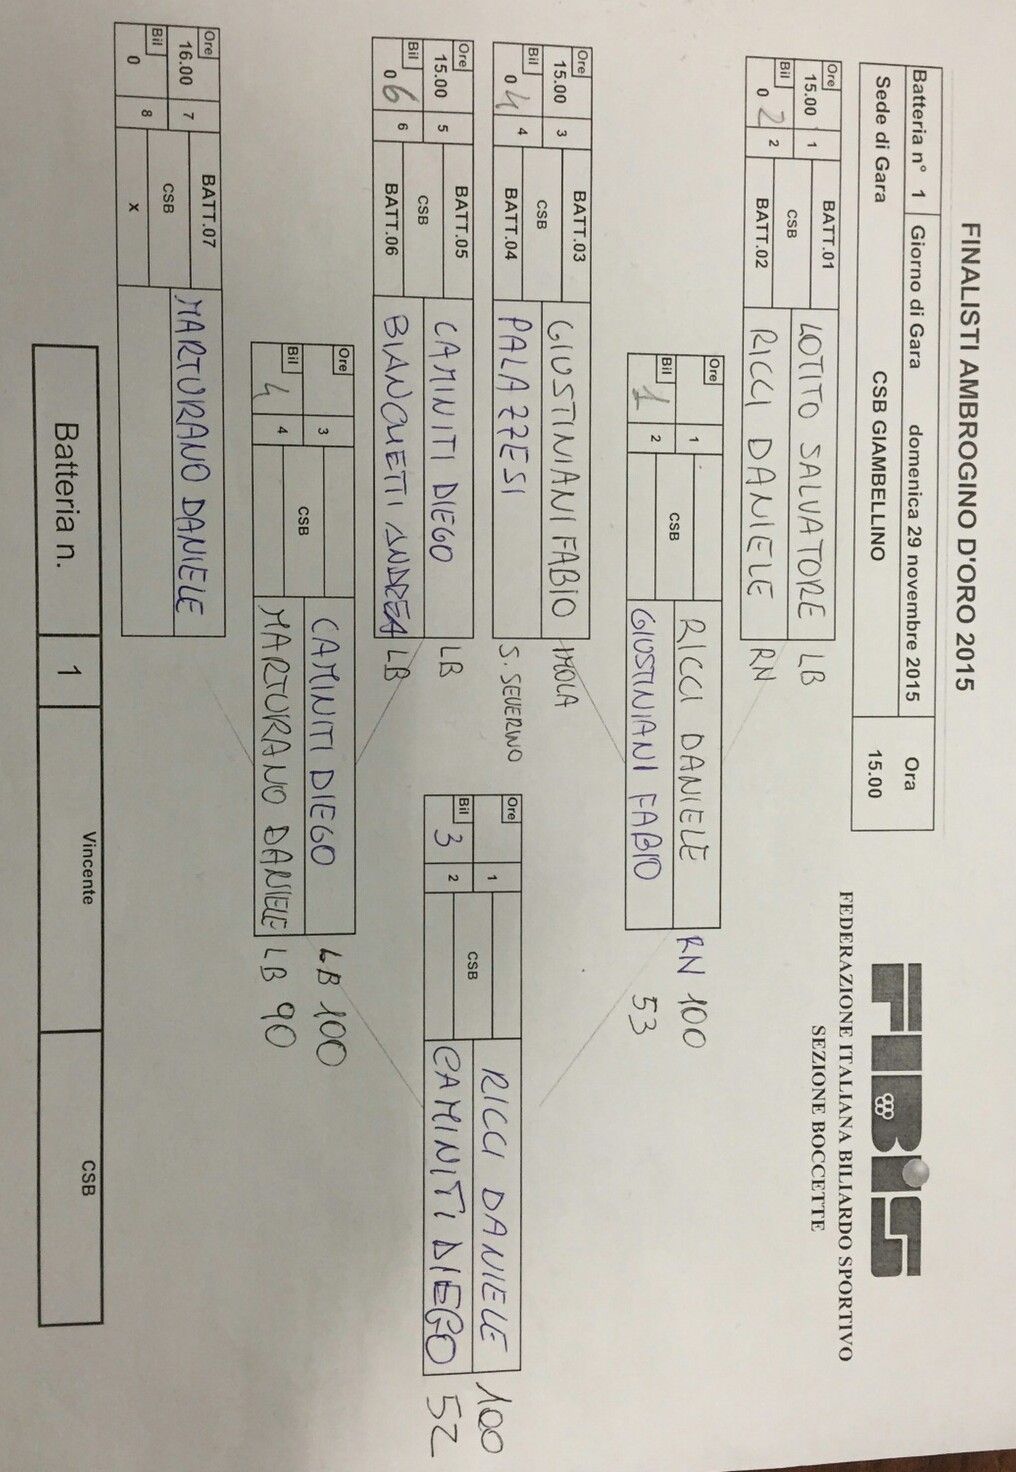 FINALISTI AMBROGINO D'ORO 2015
Batteria n° 1 Giorno di Gara domenica 29 novembre 2015 Ora
Sede di Gara CSB GIAMBELLINO 15.00
FIBiS
FEDERAZIONE ITALIANA BILIARDO SPORTIVO
SEZIONE BOCCETTE
Ore 15.00 1 BATT.01 LOTITO SALVATORE LB
CSB
Bil 0 2 2 BATT.02 RICCI DANIELE RN
Ore 1 RICCI DANIELE RN 100
CSB
Bil 1 2 GIUSTINIANI FABIO 53
Ore 15.00 3 BATT.03 GIUSTINIANI FABIO IMOLA
CSB
Bil 0 4 4 BATT.04 PALAZZESI S. SEVERINO
Ore 1 RICCI DANIELE 100
CSB
Bil 3 2 CAMINITI DIEGO 52
Ore 15.00 5 BATT.05 CAMINITI DIEGO LB
CSB
Bil 0 6 6 BATT.06 BIANCHETTI ANDREA LB
Ore 3 CAMINITI DIEGO LB 100
CSB
Bil 4 4 MARTURANO DANIELE LB 90
Ore 16.00 7 BATT.07 MARTURANO DANIELE
CSB
Bil 0 8 X
Batteria n. 1 Vincente CSB